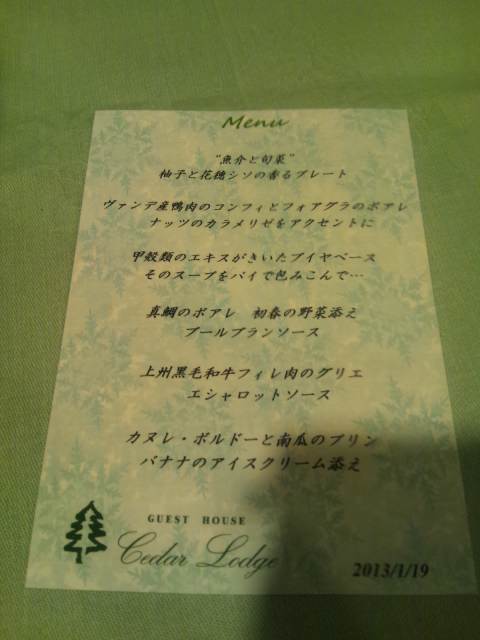 Menu
“魚介と旬菜”
柚子と花穂シソの香るプレート
ヴァンデ産鴨肉のコンフィとフォアグラのポアレ
ナッツのカラメリゼをアクセントに
甲殻類のエキスがきいたブイヤベース
そのスープをパイで包みこんで…
真鯛のポアレ 初春の野菜添え
ブールブランソース
上州黒毛和牛フィレ肉のグリエ
エシャロットソース
カヌレ・ボルドーと南瓜のプリン
バナナのアイスクリーム添え
GUEST HOUSE
Cedar Lodge
2013/1/19